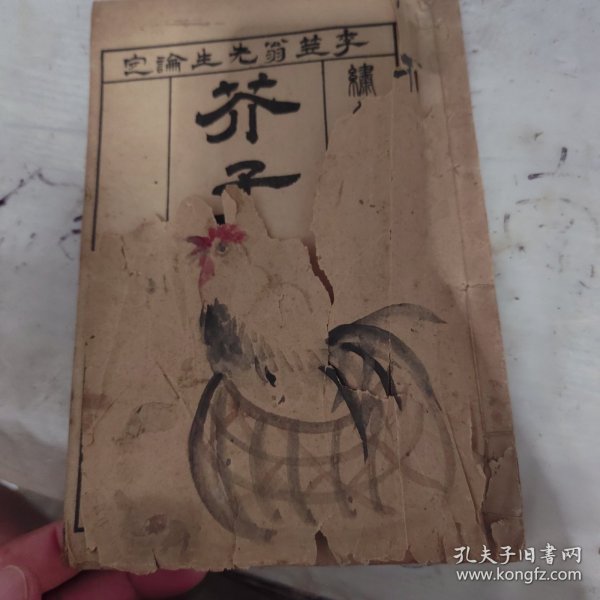 李笠翁先生論定
繡
芥子
孔夫子旧书网
www.kongfz.com